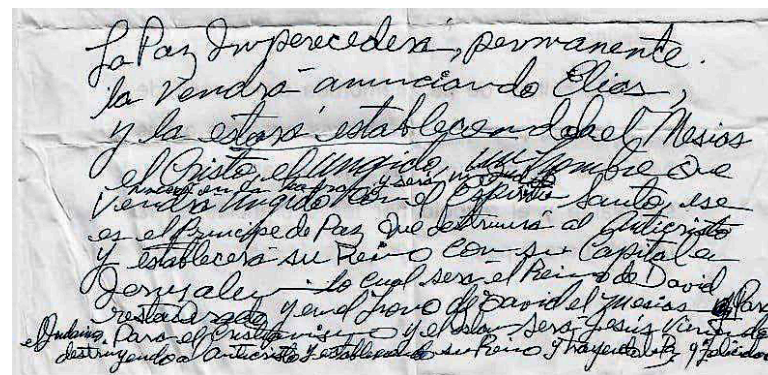 La Paz Imperecedera, permanente.
la Vendrá anunciando Elías,
y la estará estableciendo el Mesías
el Cristo, el Ungido, un hombre que
nacerá en la tierra y será ungido
Vendrá Ungido con el Espíritu Santo, ese
es el Príncipe de Paz que destruirá al anticristo
y establecerá su Reino con su Capital en
Jerusalen lo cual será el Reino de David
restaurado y en el trono de David el Mesías Para
el Judaismo. Para el Cristianismo y el islam será Jesús Viniendo
destruyendo a anticristo y estableciendo su Reino y trayendo la Paz y felicidad